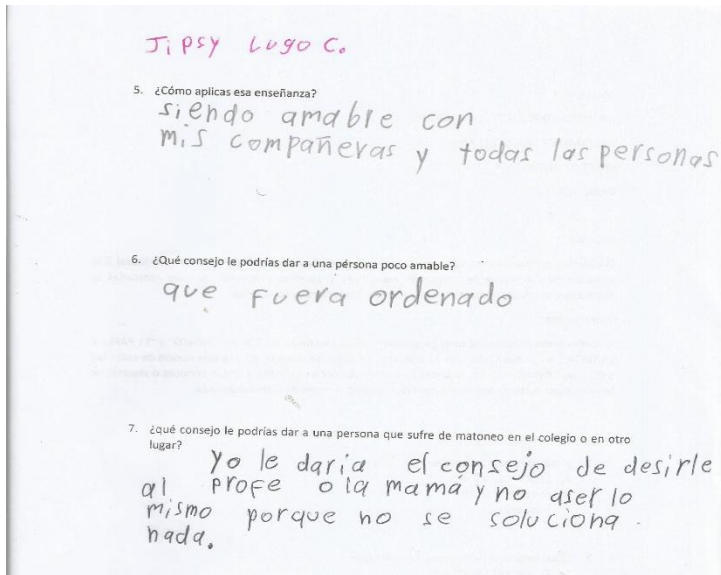 Jipsy Lugo C.
5. ¿Cómo aplicas esa enseñanza?
siendo amable con
mis compañeras y todas las personas
6. ¿Qué consejo le podrías dar a una pérsona poco amable?
que fuera ordenado
7. ¿qué consejo le podrías dar a una persona que sufre de matoneo en el colegio o en otro
lugar?
yo le daria el consejo de desirle
al profe o la mamá y no aser lo
mismo porque no se soluciona
nada.